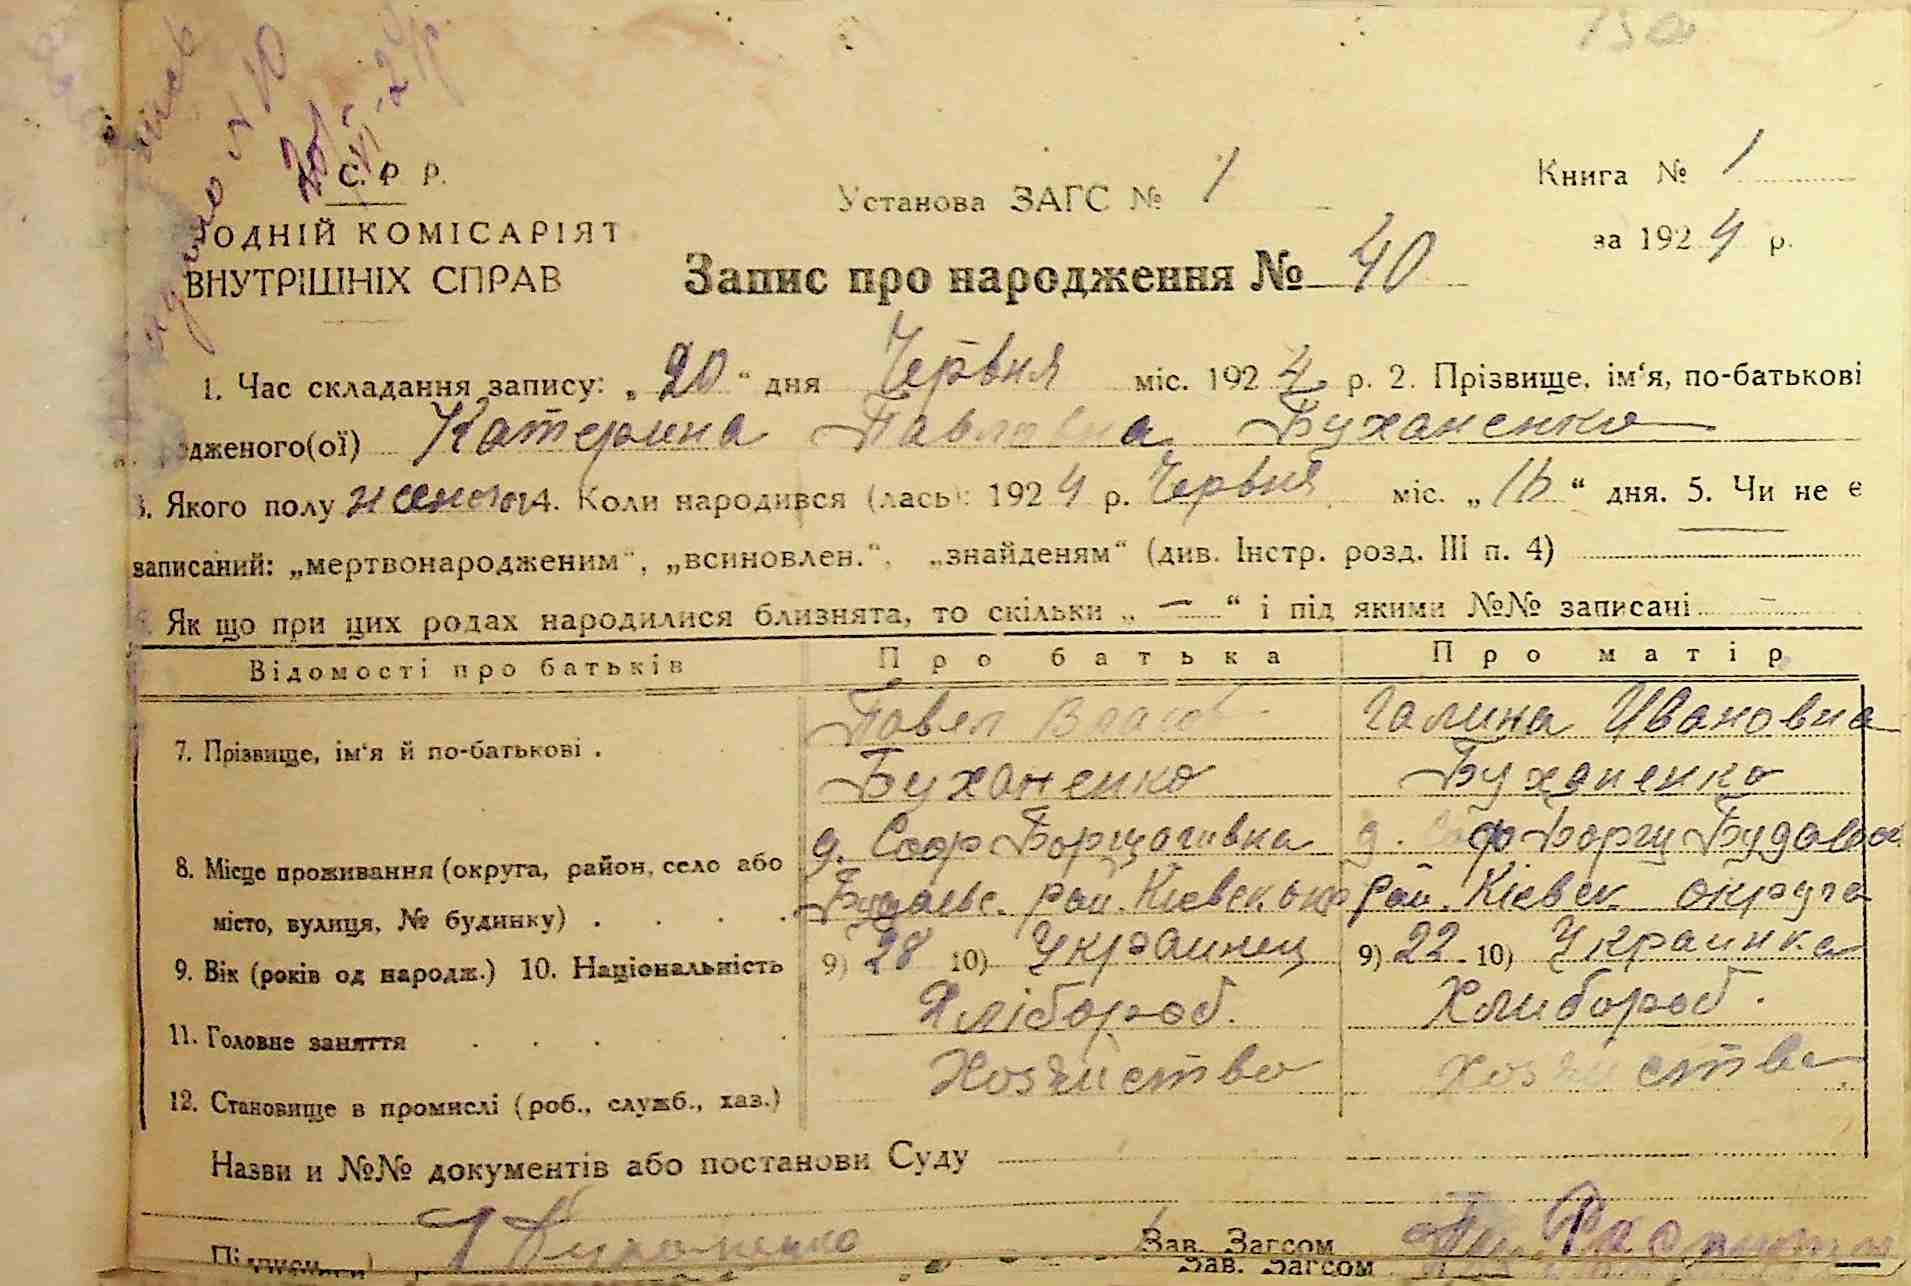 С. Р Р.
Установа ЗАГС № 1
Книга № 1
ОДНІЙ КОМІСАРІЯТ
ВНУТРІШНІХ СПРАВ
за 1924 р.
Запис про народження № 40
1. Час складання запису: „20“ дня Червня міс. 1924 р. 2. Прізвище, ім‘я, по-батькові
дженого(ої) Катерина Павловна Буханенко
3. Якого полу 4. Коли народився (лась): 1924 р. Червня міс. „16“ дня. 5. Чи не є
записаний: „мертвонародженим“, „всиновлен.“, „знайденям“ (див. Інстр. розд. III п. 4)
6. Як що при цих родах народилися близнята, то скільки „ — “ і під якими №№ записані —
Відомості про батьків Про батька Про матір
7. Прізвище, ім‘я й по-батькові .
Павел Влас
Буханенко
Галина Ивановна
Буханенко
8. Місце проживання (округа, район, село або
місто, вулиця, № будинку) . . . .
д. Соф Борщагивка
Будаевс. рай. Кіевск окр
д. Соф Борщ Будаевск
рай. Кіевск округа
9. Вік (років од народж.) 10. Національність
9) 28 10) Украинец
9) 22 10) Украинка
11. Головне заняття . . . . . .
Хлібороб.
Хлибороб.
12. Становище в промислі (роб., служб., хаз.)
Хозяиство
Хозяиство
Назви и №№ документів або постанови Суду
Зав. Загсом
Зав. Загсом